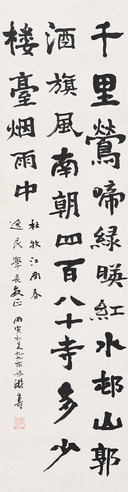 千里鶯啼緑暎红水邨山郭
酒旗風南朝四百八十寺多少
楼臺烟雨中
杜牧江南春
逸民學長教正 丙寅初夏 游壽